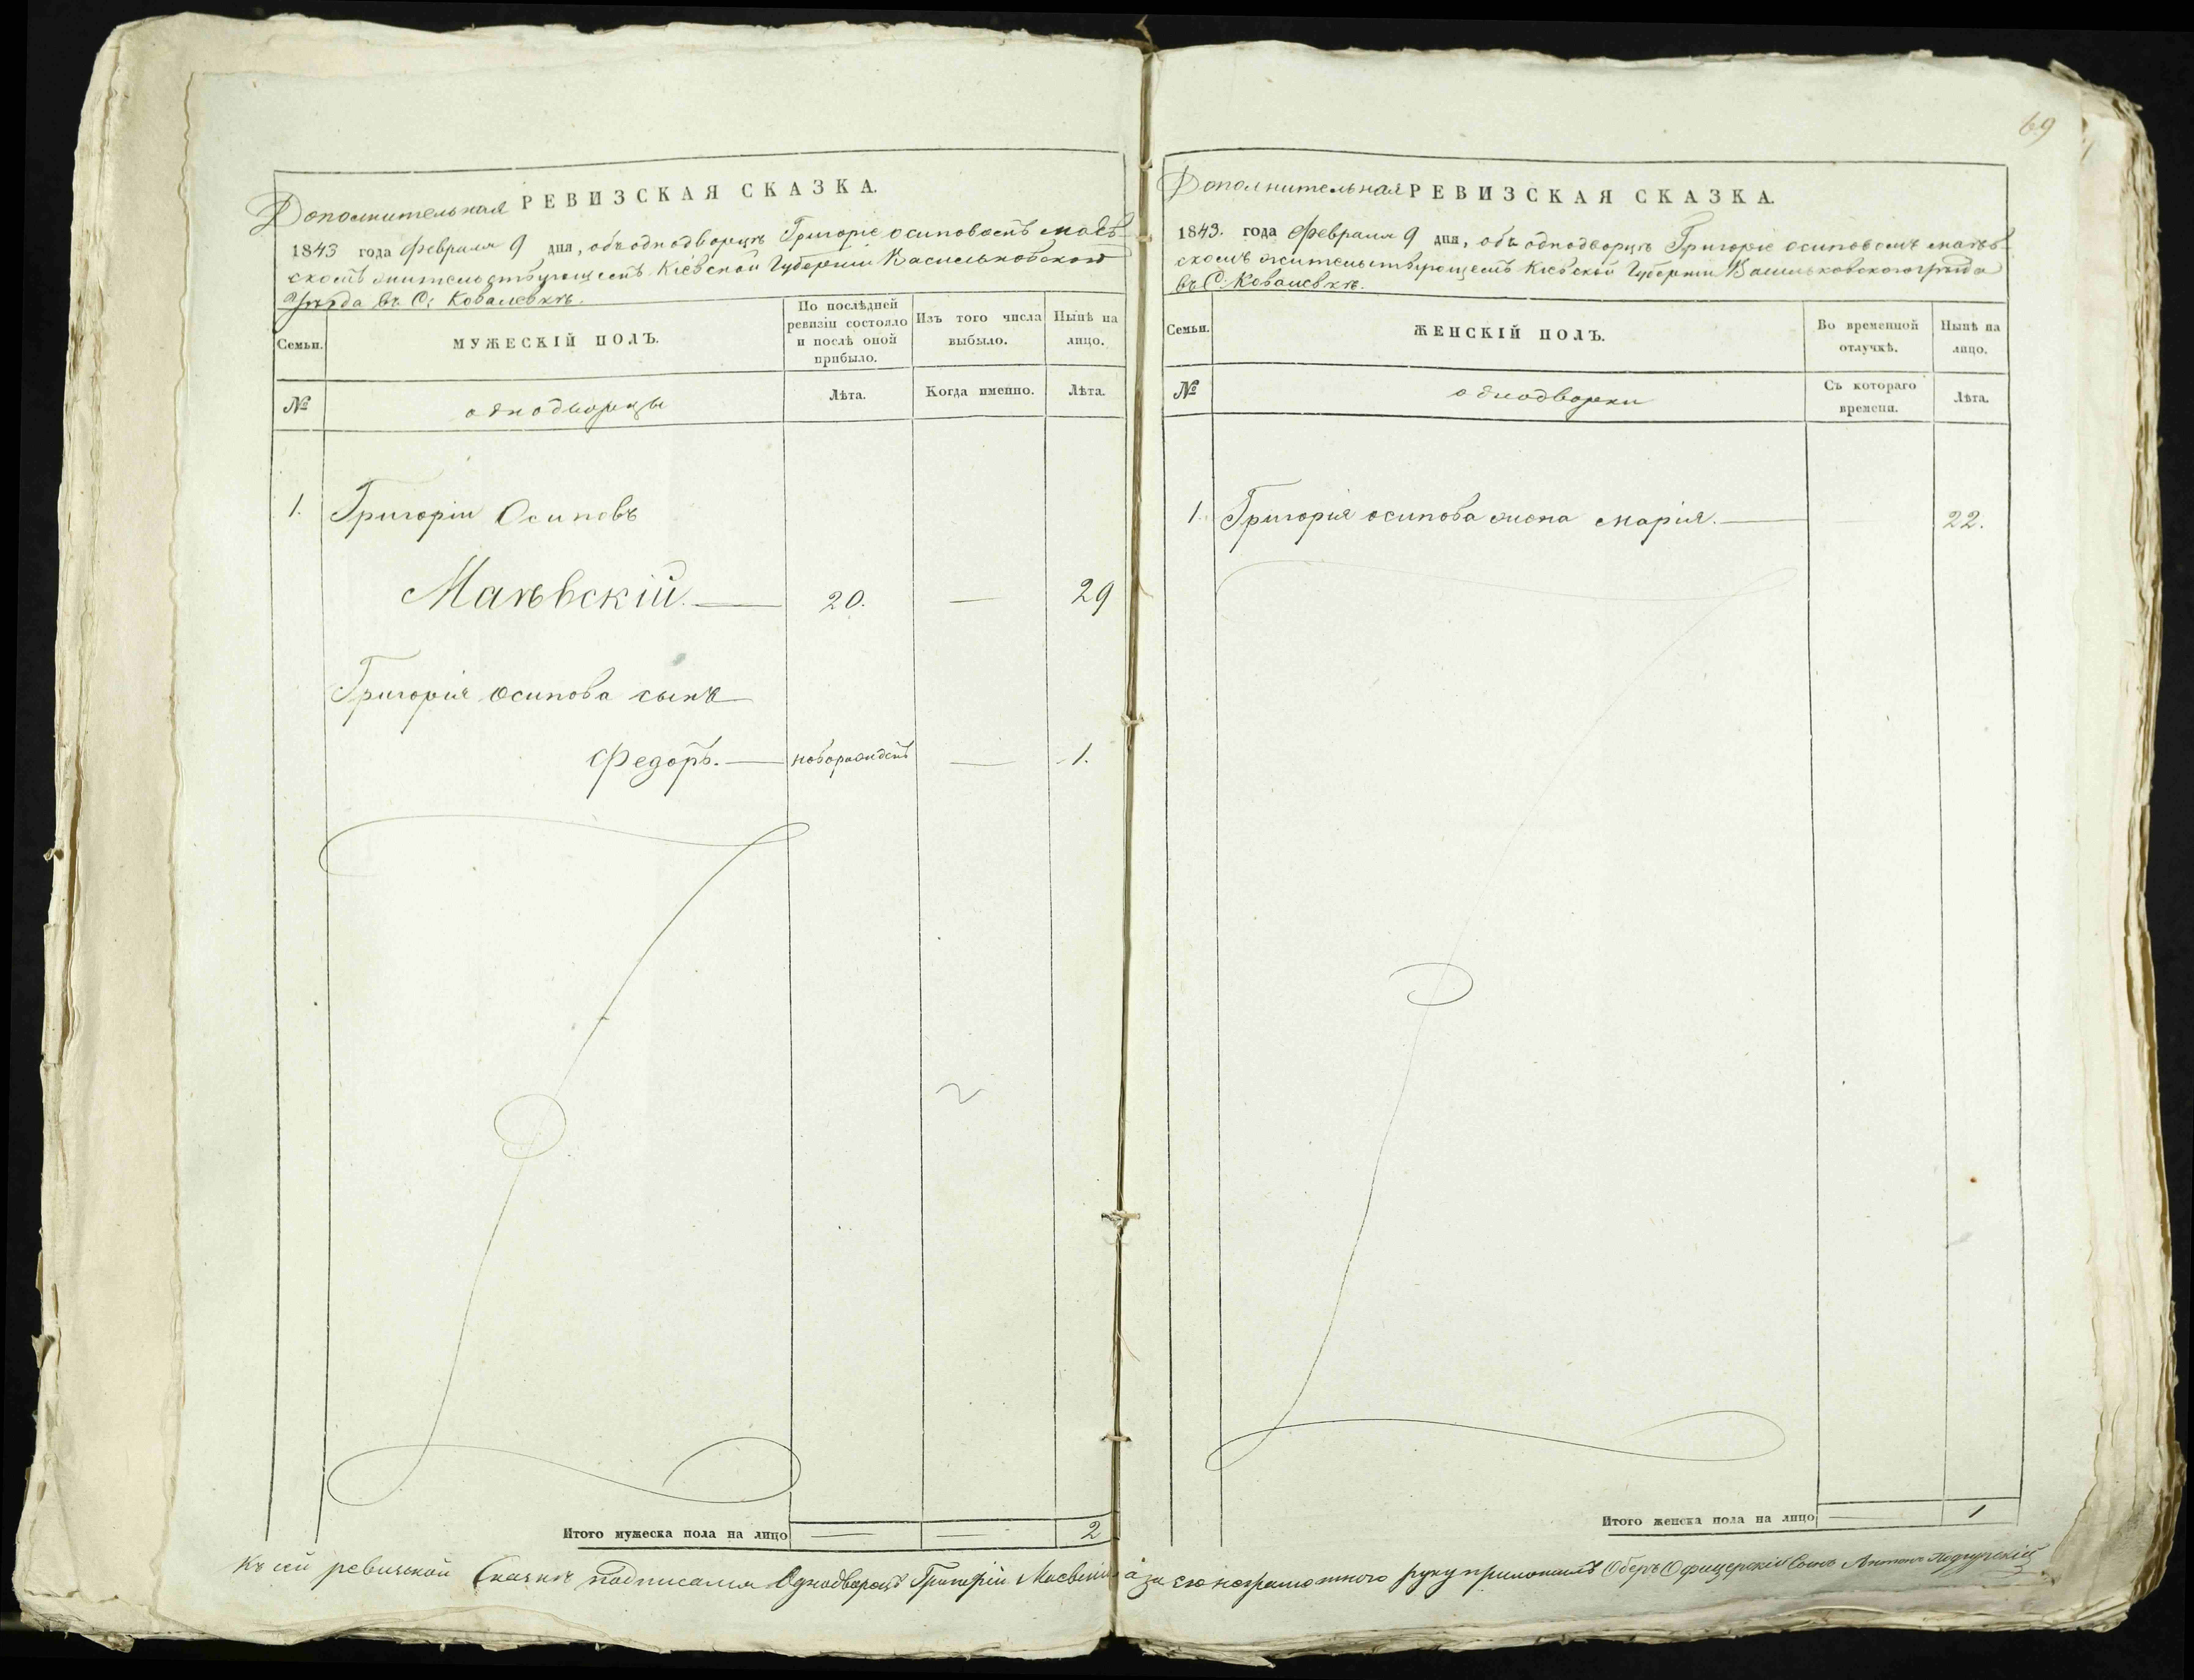 Дополнительная РЕВИЗСКАЯ СКАЗКА.
1843 года февраля 9 дня, объ однодворцѣ Григоріе Осиповомъ Маѣв-
скомъ жительствующемъ Кіевской Губерніи Васильковского
уѣзда въ С: Ковалевкѣ.
Семьи.
МУЖЕСКІЙ ПОЛЪ.
По послѣдней
ревизіи состояло
и послѣ оной
прибыло.
Изъ того числа
выбыло.
Нынѣ на
лицо.
№
однодворцы
Лѣта.
Когда именно.
Лѣта.
1. Григоріи Осиповъ
Маѣвскій. — 20. — 29
Григорія Осипова сынъ
Федоръ. — новорожденъ — 1.
Итого мужеска пола на лицо — — 2
69
Дополнительная РЕВИЗСКАЯ СКАЗКА.
1843. года февраля 9 дня, объ однодворцѣ Григоріе Осиповомъ Маѣв-
скомъ жительствующемъ Кіевской Губерніи Васильковского уѣзда
въ С: Ковалевкѣ.
Семьи.
ЖЕНСКІЙ ПОЛЪ.
Во временной
отлучкѣ.
Нынѣ на
лицо.
№
однодворки
Съ котораго
времени.
Лѣта.
1. Григорія Осипова жена Марія. — — 22.
Итого женска пола на лицо — 1
Къ сей ревизской Сказкѣ подписался Однодворецъ Григорій Маевскій а за его неграмотного руку приложилъ Оберъ Офицерскій Сынъ Антонъ